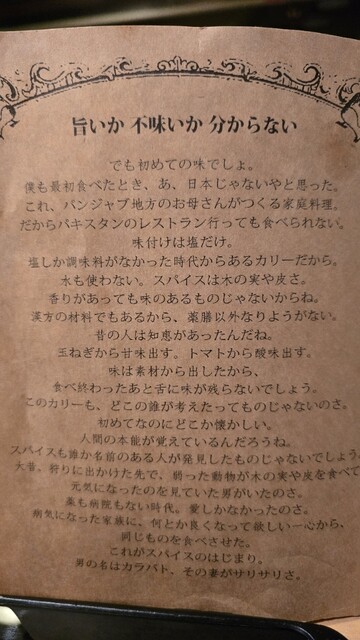 旨いか 不味いか 分からない
でも初めての味でしょ。
僕も最初食べたとき、あ、日本じゃないやと思った。
これ、パンジャブ地方のお母さんがつくる家庭料理。
だからパキスタンのレストラン行っても食べられない。
味付けは塩だけ。
塩しか調味料がなかった時代からあるカリーだから。
水も使わない。スパイスは木の実や皮さ。
香りがあっても味のあるものじゃないからね。
漢方の材料でもあるから、薬膳以外なりようがない。
昔の人は知恵があったんだね。
玉ねぎから甘味出す。トマトから酸味出す。
味は素材から出したから、
食べ終わったあと舌に味が残らないでしょう。
このカリーも、どこの誰が考えたってものじゃないのさ。
初めてなのにどこか懐かしい。
人間の本能が覚えているんだろうね。
スパイスも誰か名前のある人が発見したものじゃないでしょう。
大昔。狩りに出かけた先で、弱った動物が木の実や皮を食べて
元気になったのを見ていた男がいたのさ。
薬も病院もない時代。愛しかなかったのさ。
病気になった家族に、何とか良くなって欲しい一心から、
同じものを食べさせた。
これがスパイスのはじまり。
男の名はカラバト、その妻がサリサリさ。